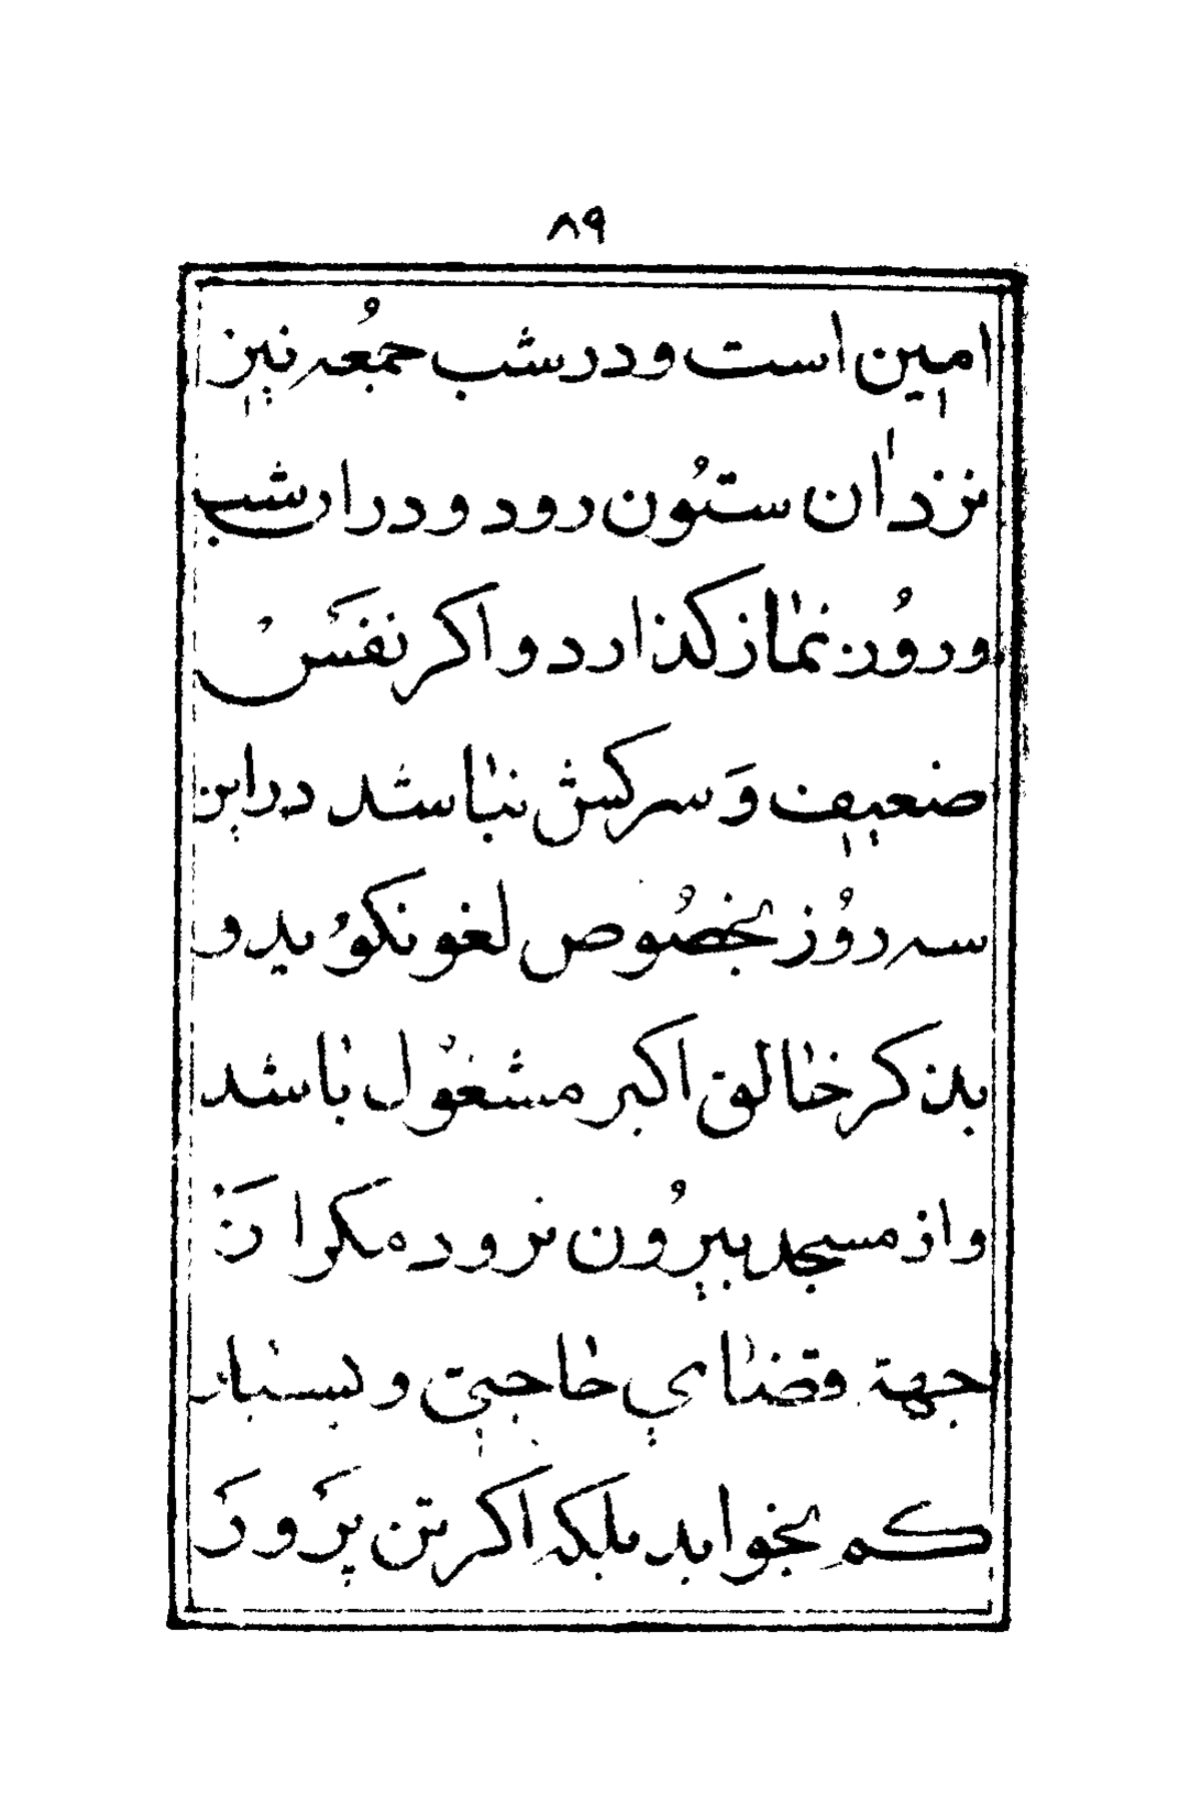 ۸۹
امین است و در شب جمعُه نیز
نزدان ستُون رود و درار شب
و روُز نماز کذارد و اکر نفَس
ضعیف وَ سرکش نباشد در این
سه روُز بخصُوص لغو نکوُید و
بذکر خالق اکبر مشغوُل باشد
و از مسجد بیرُون نرود مکر از
جهة و قضای حاجتی و بسیار
کم بخوابد بلکه اکر تن پَرورَ